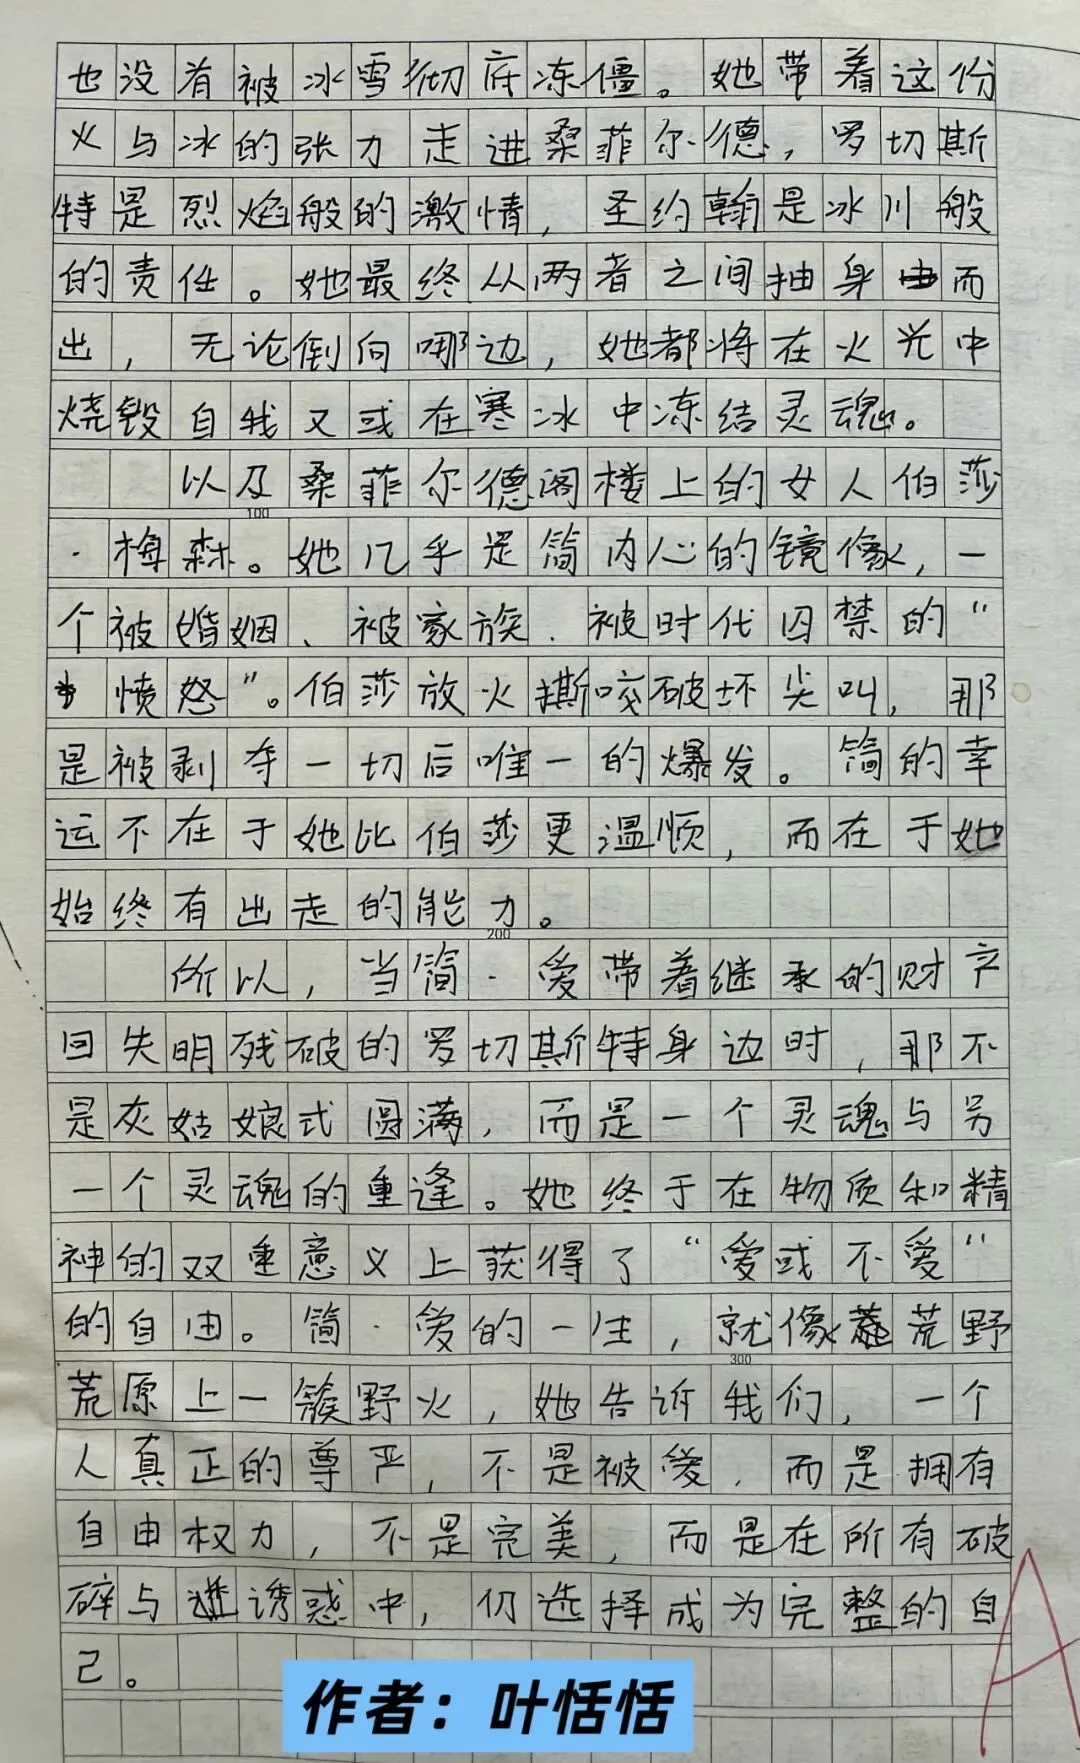 也没有被冰雪彻底冻僵。她带着这份
火与冰的张力走进桑菲尔德，罗切斯
特是烈焰般的激情，圣约翰是冰川般
的责任。她最终从两者之间抽身而
出，无论倒向哪边，她都将在火光中
烧毁自我又或在寒冰中冻结灵魂。
以及桑菲尔德阁楼上的女人伯莎
100
·梅森。她几乎是简内心的镜像，一
个被婚姻、被家族、被时代囚禁的“
愤怒”。伯莎放火撕咬破坏尖叫，那
是被剥夺一切后唯一的爆发。简的幸
运不在于她比伯莎更温顺，而在于她
始终有出走的能力。
200
所以，当简·爱带着继承的财产
回失明残破的罗切斯特身边时，那不
是灰姑娘式圆满，而是一个灵魂与另
一个灵魂的重逢。她终于在物质和精
神的双重意义上获得了“爱或不爱”
的自由。简·爱的一生，就像荒野
300
荒原上一簇野火，她告诉我们，一个
人真正的尊严，不是被爱，而是拥有
自由权力，不是完美，而是在所有破
碎与诱惑中，仍选择成为完整的自
己。
A
作者：叶恬恬